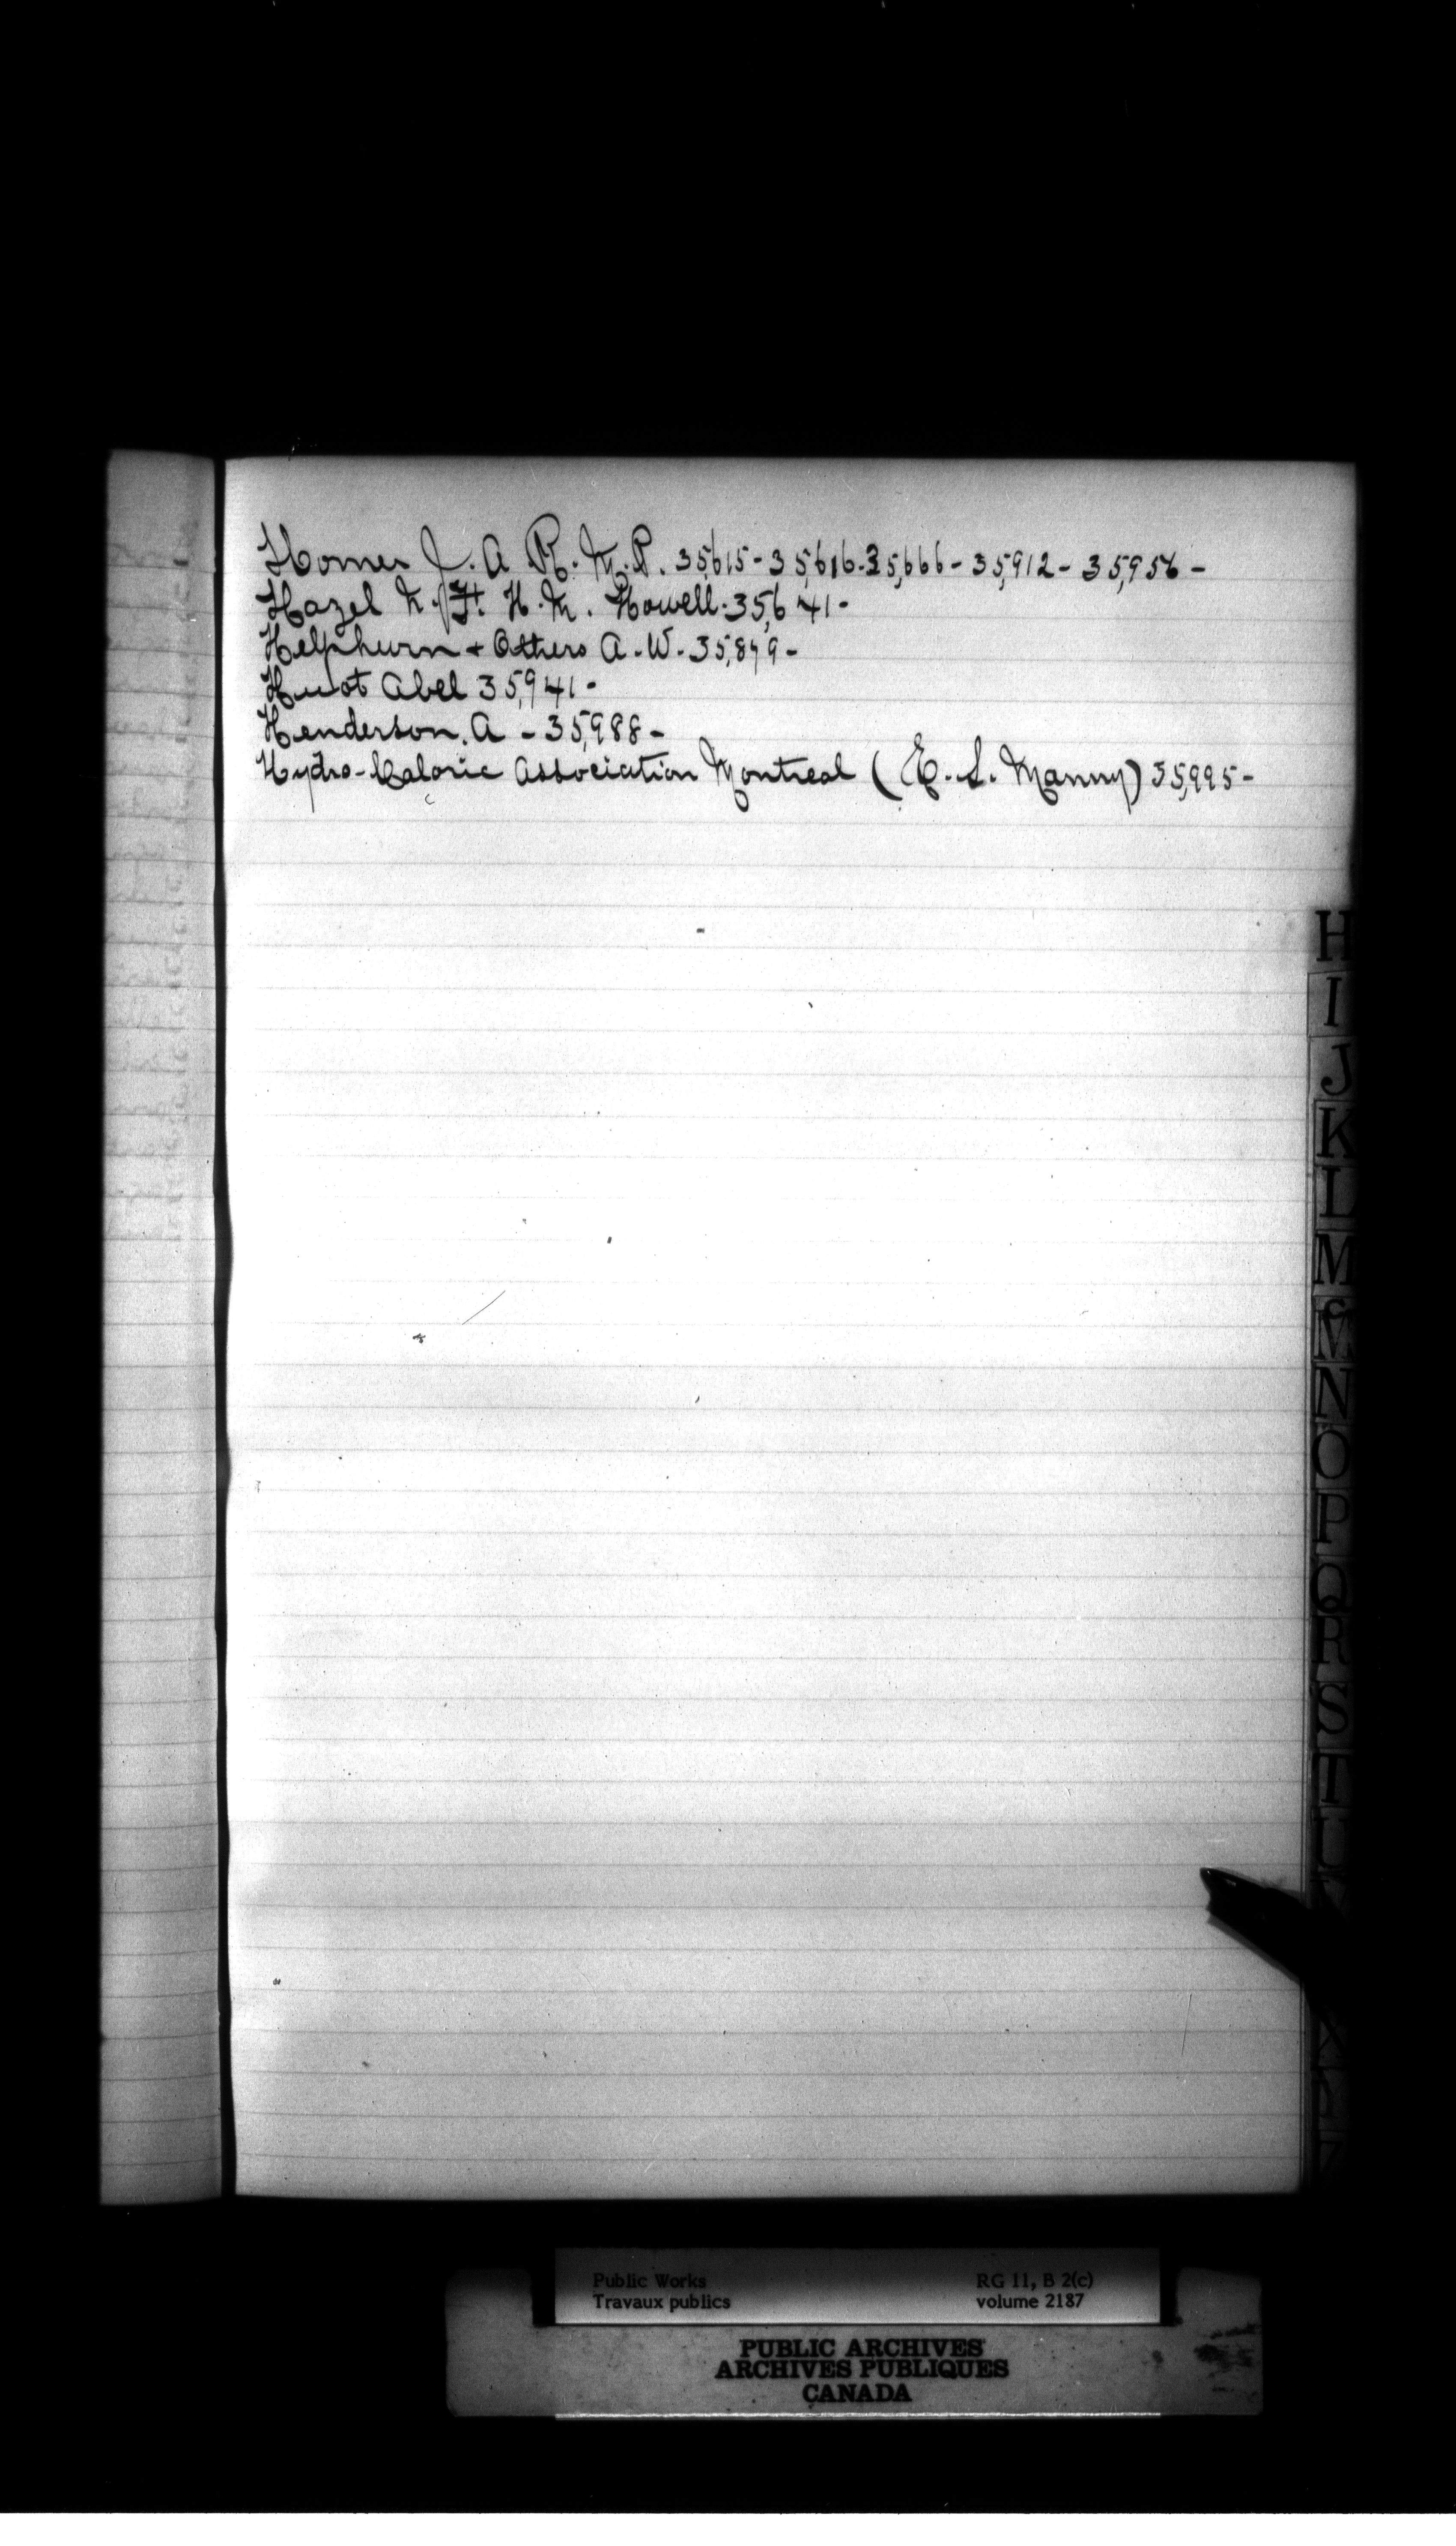 Homer J. A. R. M.P. 35,615 - 35,616 - 35,666 - 35,912 - 35,956 -
Hazel H. M. Howell - 35,641 -
Helphurn + Others A. W. 35,879 -
Huot Abel 35,941 -
Henderson. A - 35,988 -
Hydro-Caloric Association Montreal (E. L. Manny) 35,995 -
H
I
J
K
L
M
Mc
N
O
P
Q
R
S
T
U
X
Y
Z
Public Works RG 11, B 2(c)
Travaux publics volume 2187
PUBLIC ARCHIVES
ARCHIVES PUBLIQUES
CANADA